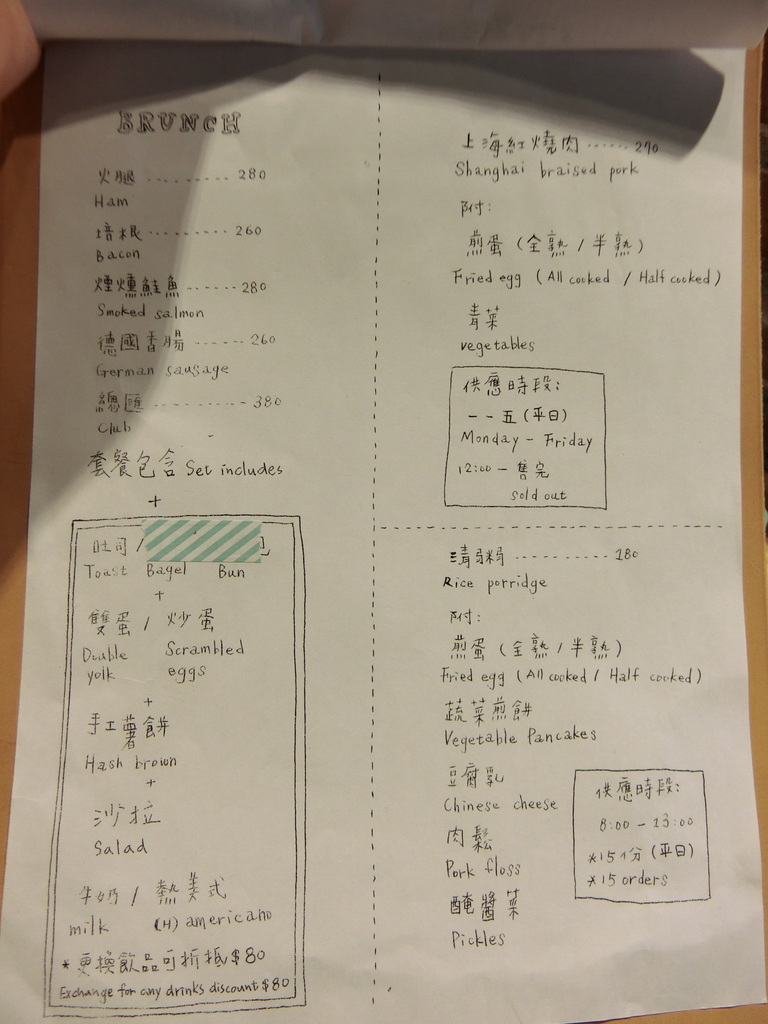 BRUNCH
火腿 ......... 280
Ham
培根 ......... 260
Bacon
煙燻鮭魚 ...... 280
Smoked salmon
德國香腸 ...... 260
German sausage
總匯 .......... 380
Club
套餐包含 Set includes
+
吐司 /
Toast Bagel Bun
+
雙蛋 / 炒蛋
Double Scrambled
yolk eggs
+
手工薯餅
Hash brown
+
沙拉
Salad
牛奶 / 熱美式
milk (H) americano
* 更換飲品可折抵$80
Exchange for any drinks discount $80
上海紅燒肉 ...... 270
Shanghai braised pork
附:
煎蛋 (全熟 / 半熟)
Fried egg (All cooked / Half cooked)
青菜
vegetables
供應時段:
一 - 五 (平日)
Monday - Friday
12:00 - 售完
sold out
清粥 ........... 180
Rice porridge
附:
煎蛋 (全熟 / 半熟)
Fried egg (All cooked / Half cooked)
蔬菜煎餅
Vegetable Pancakes
豆腐乳
Chinese cheese
肉鬆
Pork floss
醃醬菜
Pickles
供應時段:
8:00 - 13:00
*15份 (平日)
*15 orders